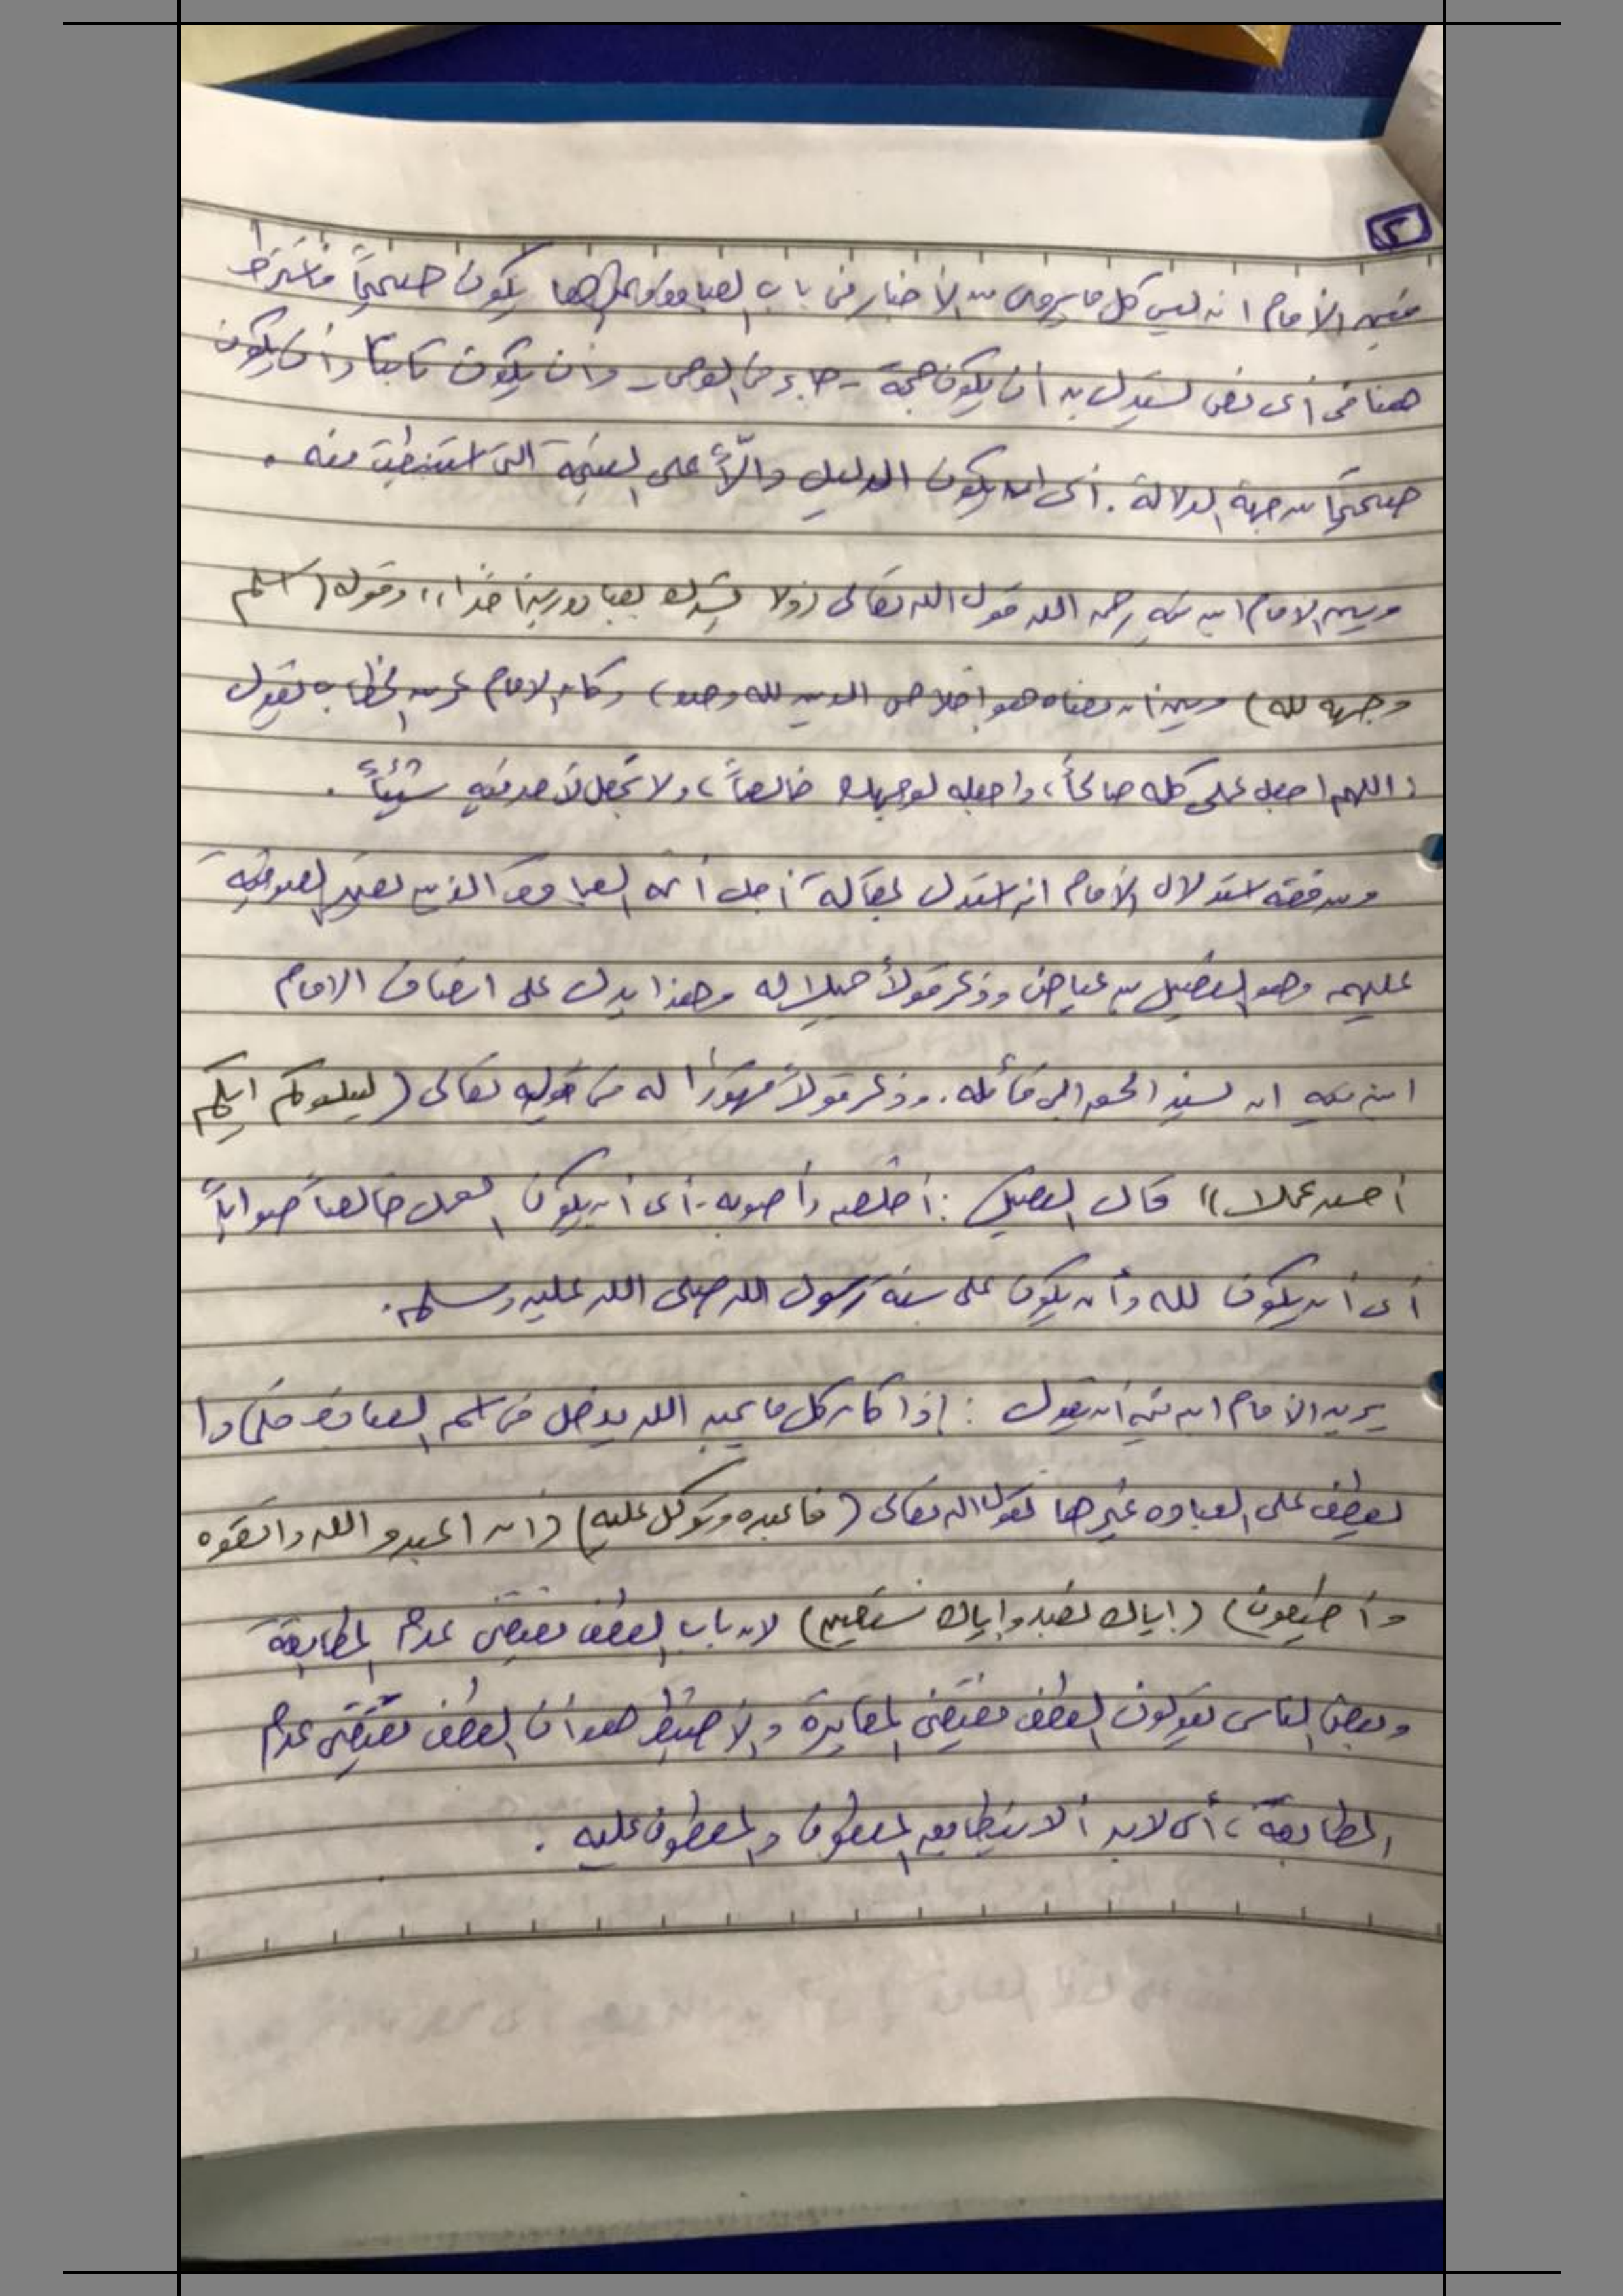 ٢
فبين الإمام انه ليس كل ما يروى من الأخبار فى باب العبادة يكون صحيحاً فاشترط
هنا فى أى نص نستدل به أن يكون حجة - جاء فى الوحى - وأن يكون ثابتاً وأن يكون
صحيحاً من جهة الدلالة . أى ان يكون الدليل دالاً على النتيجة التى استنبطت منه .
وبين الامام ابن تيميه رحمه الله قول الله تعالى (ولا يشرك بعبادة ربه أحدا)) وقوله (اسلم
وجهه لله) وبين أن معناه هو إخلاص الدين لله وحده) وكان الامام عمر بن الخطاب يقول
(اللهم اجعل عملى كله صالحاً، واجعله لوجهك خالصاً، ولا تجعل لأحد فيه شيئاً .
ومن فقه استدلال الإمام انه استدل بمقالة أجل أئمة العبادة الذين تعتمد الصوفية
عليهم وهو الفضيل بن عياض وذكر قولاً جليلا له وهذا يدل على انصاف الامام
ابن تيميه ان نسب الحق الى قائله . وذكر قولاً مشهوراً له فى قوله تعالى (ليبلوكم ايكم
أحسن عملا)) قال الفضيل : أخلصه وأصوبه - أى أن يكون العمل خالصاً صواباً
أى أن يكون لله وأن يكون على سنة رسول الله صلى الله عليه وسلم .
يريد الامام ابن تيميه أن يقول : إذا كان كل ما يحبه الله يدخل فى اسم العبادة فلماذا
يعطف على العباده غيرها كقول الله تعالى (فاعبده وتوكل عليه) (ان اعبدو الله واتقوه
وأطيعون) (إياك نعبد وإياك نستعين) لان باب العطف يقتضى عدم المطابقة
وبعض الناس يقولون العطف يقتضى المغايرة والأضبط هو أن العطف يقتضى عدم
المطابقة ، أى لابد ألا يتطابق المعطوف والمعطوف عليه .